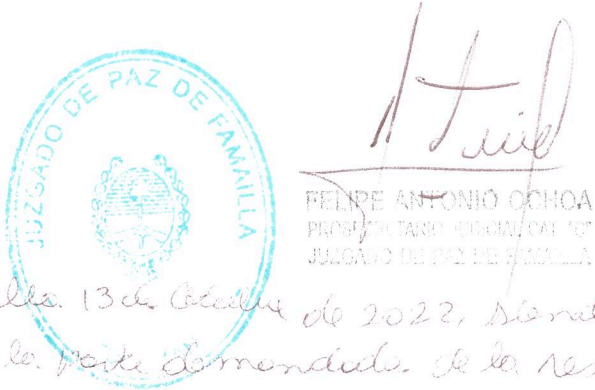 JUZGADO DE PAZ DE FAMAILLA
FELIPE ANTONIO OCHOA
PROSECRETARIO JUDICIAL CAT "C"
JUZGADO DE PAZ DE FAMAILLA
13 de Octubre de 2022,
la parte demandada de la